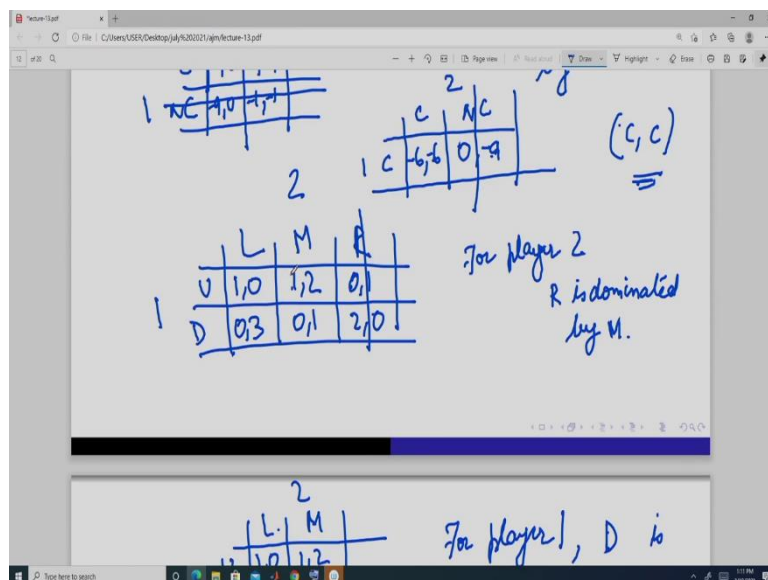 lecture-13.pdf
File | C:/Users/USER/Desktop/july%202021/ajm/lecture-13.pdf
12 of 20
Page view
Read aloud
Draw
Highlight
Erase
1 NC -9,0 -1,-1
2
C NC
1 C -6,-6 0,-9
(C, C)
2
L M R
1 U 1,0 1,2 0,1
D 0,3 0,1 2,0
For player 2
R is dominated
by M.
2
L M
1,0 1,2
For player 1, D is
Type here to search
1:11 PM